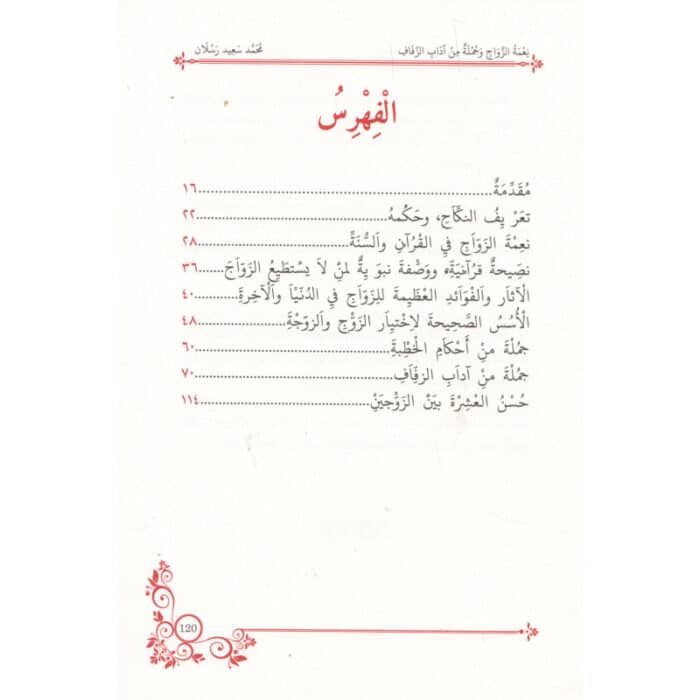 نِعْمَةُ الزَّوَاجِ وَجُمْلَةٌ مِنْ آدَابِ الزِّفَافِ مُحَمَّد سَعِيد رَسْلَان
الْفِهْرِسُ
مُقَدِّمَةٌ........................................................١٦
تعَرْ يِفُ النكَّاَحِ، وحَكُمهُ........................................................٢٢
نعِمْةَ الزَوَاَجِ فيِ القُرُآنِ واَلسُّنَةً........................................................٢٨
نصَيِحةٌ قرُآَنيَةٍَّ ووَصَّفةَ نبوَ يِةٌ لمنِْ لاَ يسَْتطَيِعُ الزَوَاَجَ........٣٦
الْآثاَر واَلفْوَاَئدِ العْظَيِمةَ للِزوَاَجِ فيِ الدُنيْاَ واَلْآخَرِةَ........٤٠
الْأُسُسُ الصَّحِيحةَ لاِخْتيِاَر الزَوّْجِ واَلزوَجّةَِ........................٤٨
جمُلْةَ منِْ أَحكْاَمِ الخطْبِةَِ........................................................٦٠
جمُلْةَ منِْ آدابَِ الزفِاَفِ........................................................٧٠
حُسْنُ العْشِرْةَ بيَنَْ الزَوَّجْيَنِْ........................................................١١٤
120